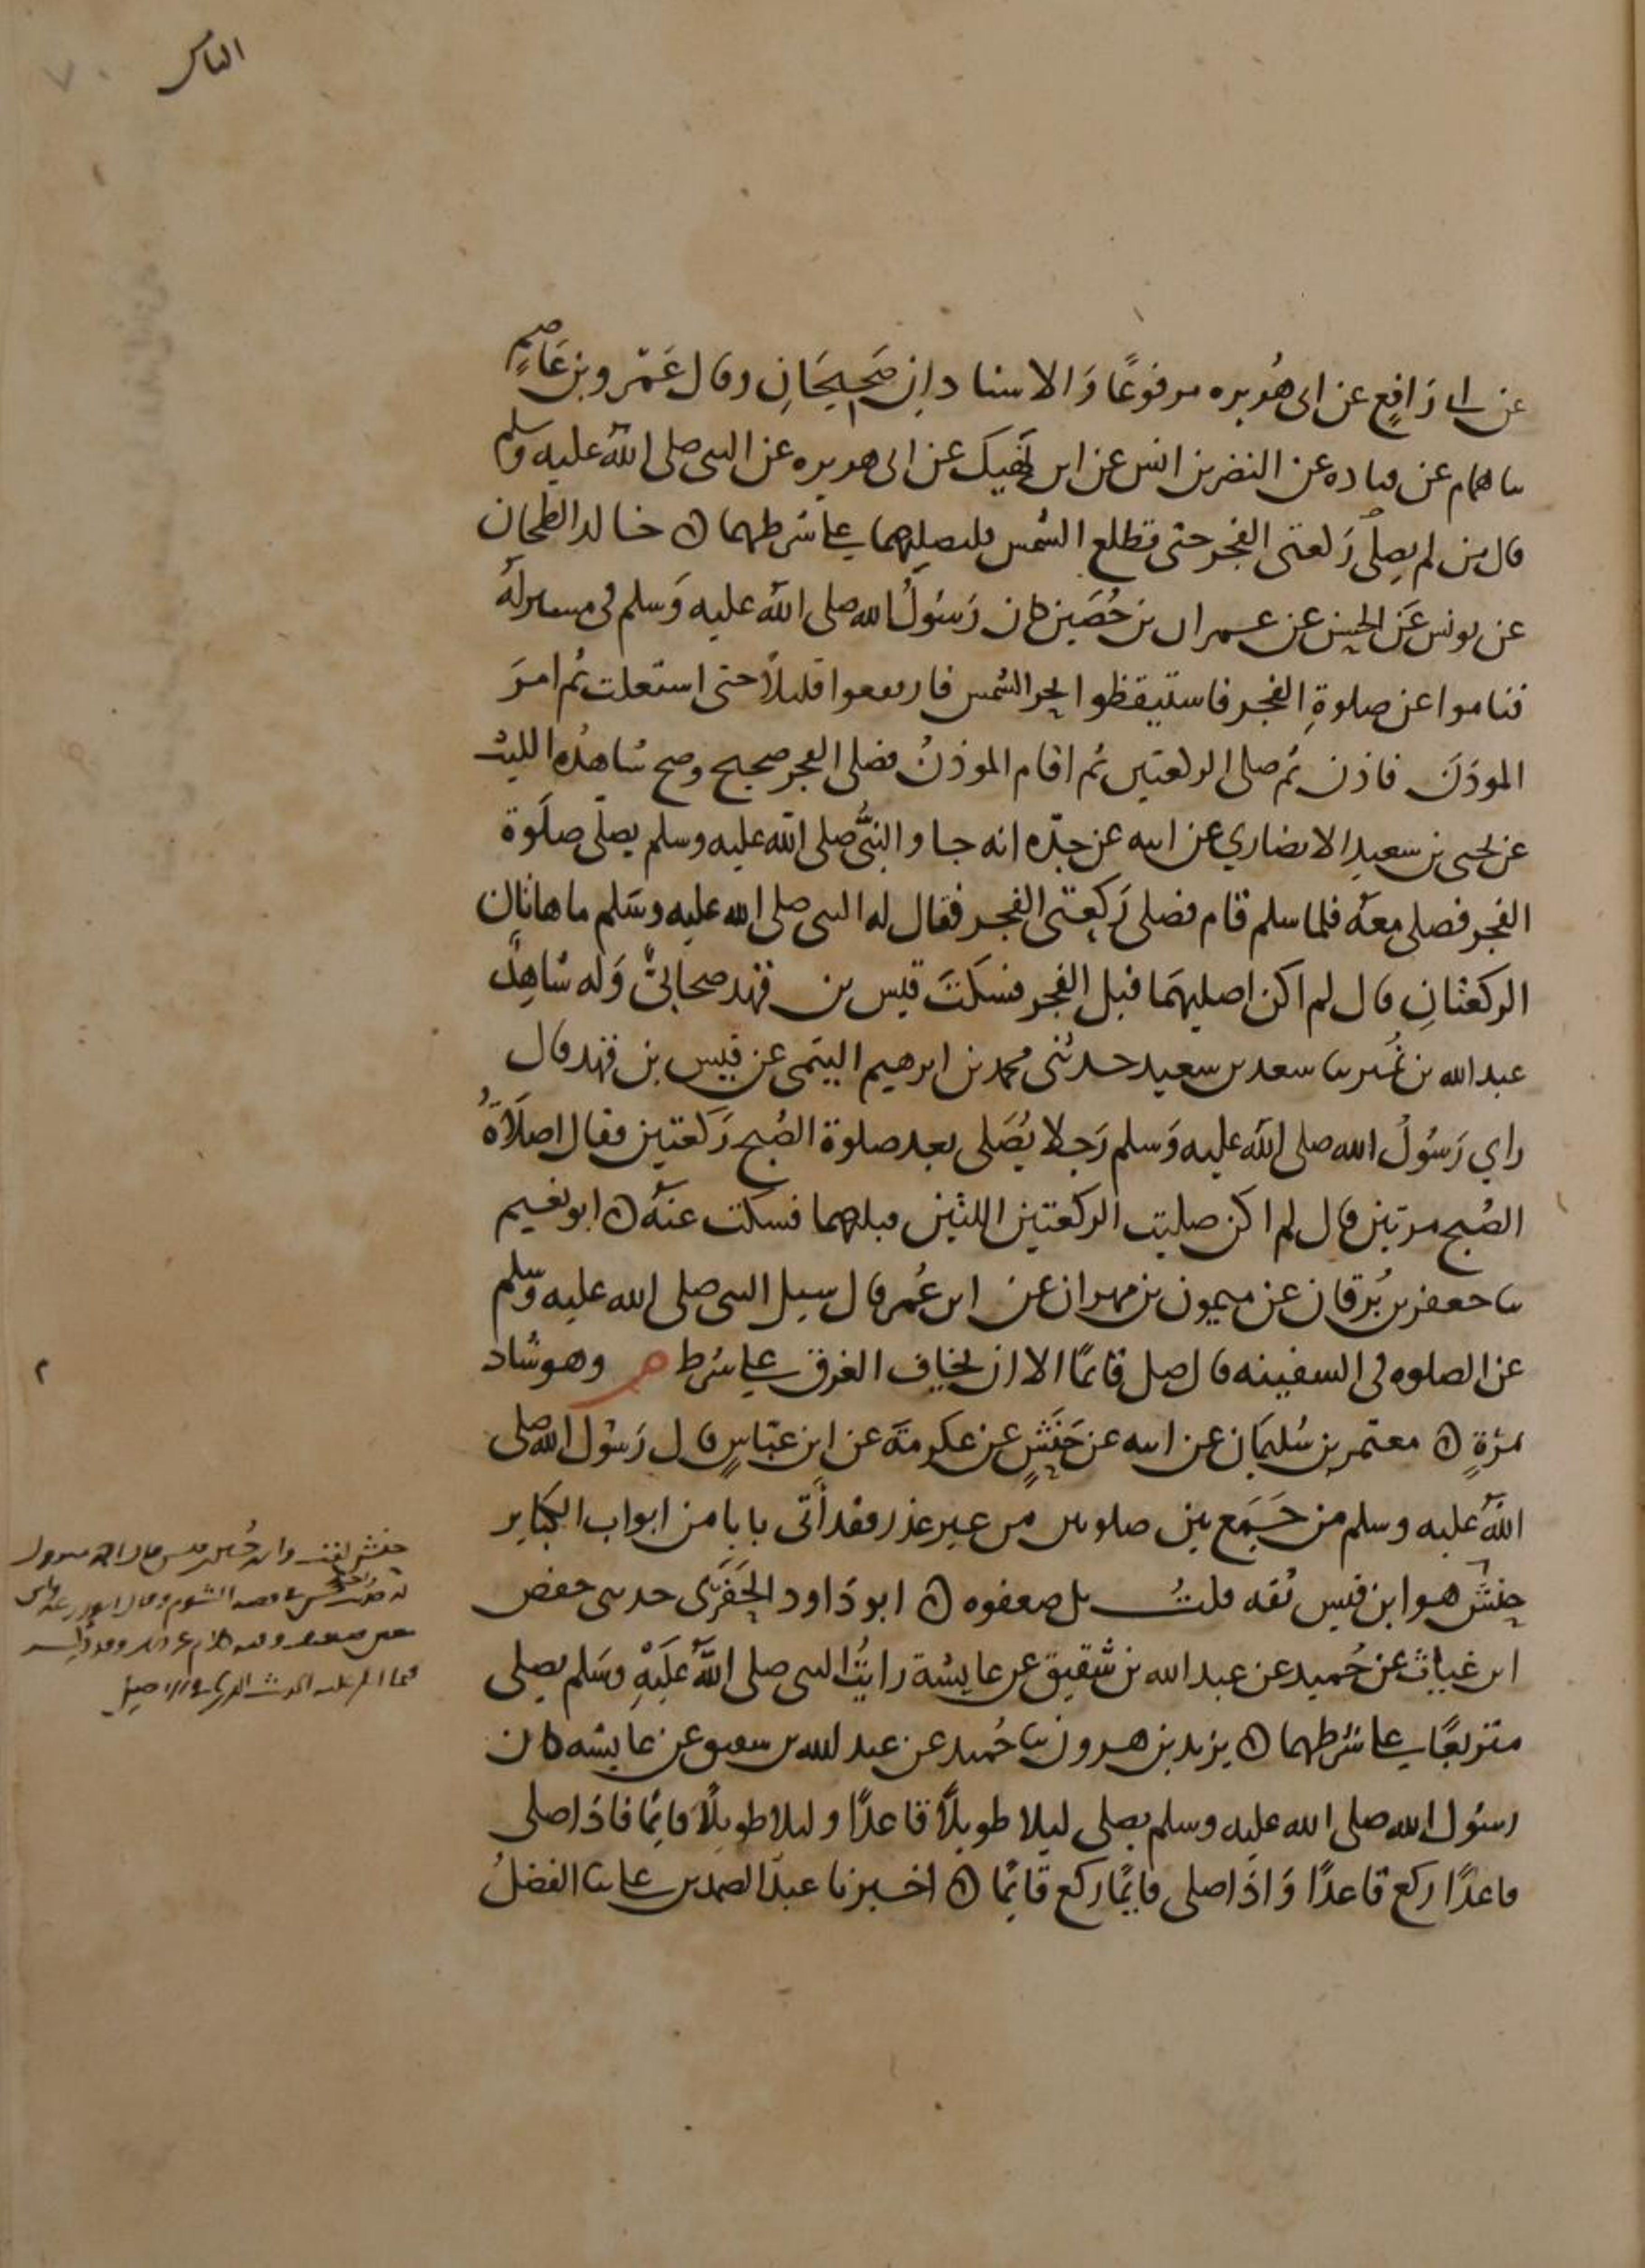 الثامن
٧٠
عن ابي رَافِعٍ عن ابى هُريره مرفوعًا وَالاسنادانِ صَحيحَانِ وقال عَمْرو بن عَاصِمٍ
سا همام عن قتاده عن النضر بن انس عن ابن نَهيك عن ابى هريره عن النبى صلى اللهُ عليه وسلم
قال من لم يصلِّ رَكعتى الفجر حتى تطلع الشمس فليصليهما على شرطهما ۞ خالد الطحان
عن يونس عَن الحسن عن عمران بن حُصَين كان رَسُولُ الله صلى اللهُ عليه وَسلم فى مسير لهُ
فناموا عن صلوةِ الفجر فاستيقظوا بحر الشمس فارتفعوا قليلاً حتى استعلت ثم امرَ
الموذنَ فاذن ثم صلى الركعتين ثم اقام الموذنُ فصلى الفجر صحيح وصح شاهدُه الليث
عن يحيى بن سعيد الانصاري عن ابيه عن جدّه انه جا والنبىُّ صلى الله عليه وسلم يصلّى صلَوة
الفجر فصلى معَه فلما سلم قام فصلى رَكعتى الفجر فقال له النبى صلى الله عليه وسَلم ما هاتان
الركعتانِ قال لم اكن اصليهمَا قبل الفجر فسكتَ قيس بن فهد صحَابىٌّ وَله شاهِدٌ
عبد الله بن نُمير سا سعد بن سعيد حدثنى محمد بن ابرهيم التيمى عن قيس بن فهد قال
راي رَسُولُ الله صلى الله عليه وَسلم رَجلا يُصَلى بعد صلوة الصُبح رَكعتين فقال اصَلاةُ
الصُبح مرتين قال لم اكن صليت الركعتين اللتين قبلهما فسكت عنهُ ۞ ابو نعيم
سا جعفر بن بُرقان عن ميمون بن مهران عن ابن عُمر قال سيل النبى صلى الله عليه وسلم
عن الصلوه فى السفينه قال صل قائمًا الا ان يخاف الغرق على شرط م وهو شاد
بمرةٍ ۞ معتمر بن سُليمَان عن ابيه عن حَنَشٍ عن عكرمَة عن ابن عبّاسٍ قال رَسُول الله صلى
اللهُ عليه وسلم من جَمَع بين صلوتين من غير عذر فقد أتى بابا من ابواب الكبَاير
حنش هو ابن قيس ثقه قلتُ بل ضعفوه ۞ ابو دَاود الحَفَرَى حدثنى حفص
ابن غياث عن حُميد عن عبد الله بن شقيق عن عايشة رايتُ النبى صلى اللهُ عَليْهِ وسَلم يصلى
متربعًا على شرطهما ۞ يزيد بن هرون سا حُميد عن عبد الله بن شقيق عن عايشه كان
رسُول الله صلى الله عليه وسلم يصلى ليلا طويلاً قاعدًا وليلا طويلاً قايمًا فاذا صلى
قاعدًا ركع قاعدًا وَاذا صلى قايمًا ركع قايمًا ۞ اخبرنا عبدُ الصمد بن على سا الفضلُ